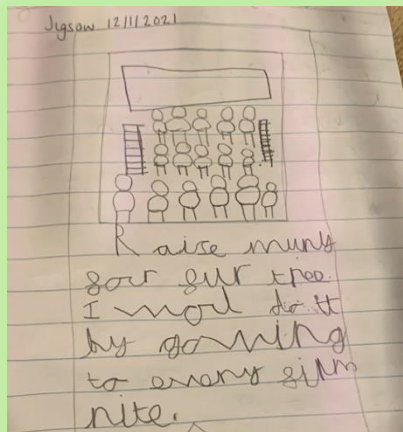 Jigsaw 12/1/2021
Raise muny
gor gur thee.
I wod do it
by gowning
to evvery film
nite.